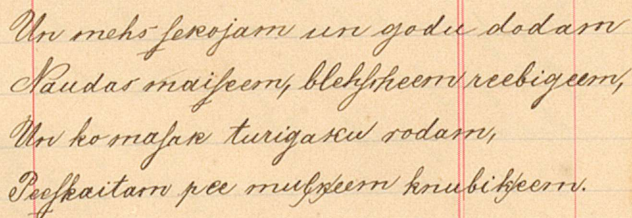 Un mehs ſekojam un godu dodam
Naudas maiſeem, blehſcheem reebigeem,
Un ko maſak turigaku rodam,
Peeſkaitam pee muļķeem knubiķeem.